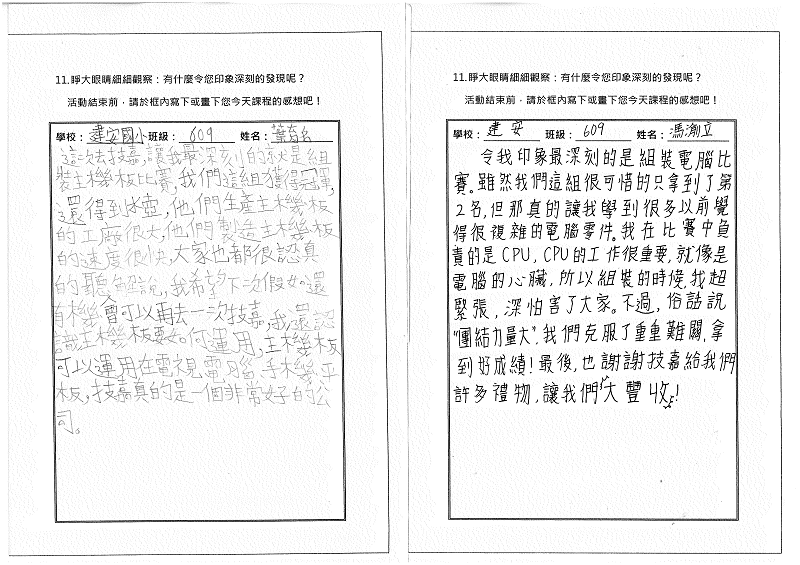 11.睜大眼睛細細觀察：有什麼令您印象深刻的發現呢？
活動結束前，請於框內寫下或畫下您今天課程的感想吧！
學校：建安國小 班級：609 姓名：葉
這次去技嘉，讓我最深刻的就是組
裝主機板比賽，我們這組獲得冠軍，
還得到水壺，他們生產主機板
的工廠很大，他們製造主機板
的速度很快，大家也都很認真
的聽解說，我希望下次假如還
有機會可以再去一次技嘉，我還認
識主機板要如何運用，主機板
可以運用在電視、電腦、手機、平
板，技嘉真的是一個非常好的公
司。
11.睜大眼睛細細觀察：有什麼令您印象深刻的發現呢？
活動結束前，請於框內寫下或畫下您今天課程的感想吧！
學校：建安 班級：609 姓名：馮渝立
令我印象最深刻的是組裝電腦比
賽。雖然我們這組很可惜的只拿到了第
2名，但那真的讓我學到很多以前覺
得很複雜的電腦零件。我在比賽中負
責的是CPU，CPU的工作很重要，就像是
電腦的心臟，所以組裝的時候，我超
緊張，深怕害了大家。不過，俗話說
"團結力量大"，我們克服了重重難關，拿
到好成績！最後，也謝謝技嘉給我們
許多禮物，讓我們大豐收！